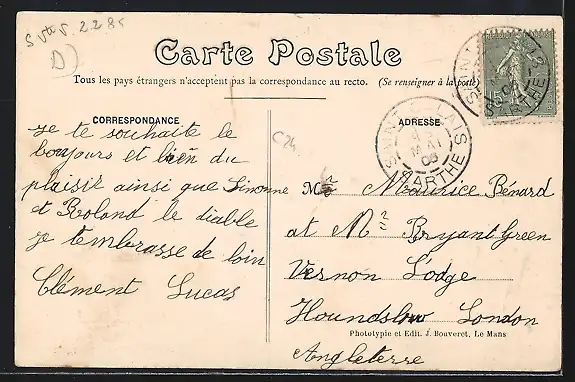 Carte Postale
Tous les pays étrangers n'acceptent pas la correspondance au recto. (Se renseigner à la poste)
CORRESPONDANCE
je te souhaite le
boujours et bien du
plaisir ainsi que Simonne
et Roland le diable
je tembrasse de loin
Clément Lucas
C24
ADRESSE
SAINT CALAIS
MAI
08
SARTHE
Mr Maurice Bénard
at Mr Bryant Green
Vernon Lodge
Hounslow London
Angleterre
Phototypie et Edit. J. Bouveret, Le Mans
15